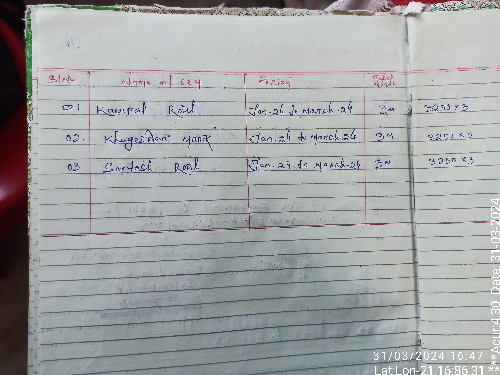 Sl No Name of SRY Period Total Month
01 Kaushal Rout Jan-24 to March-24 3M 3250 × 3
02. Khageswar Jan-24 to March-24 3M 3250 × 3
03 Santosh Rout Jan-24 to March-24 3M 3250 × 3
31/03/2024 16:47
Lat:Lon-21.16:86.31
***Acur:4.30 Date:31-03-2024